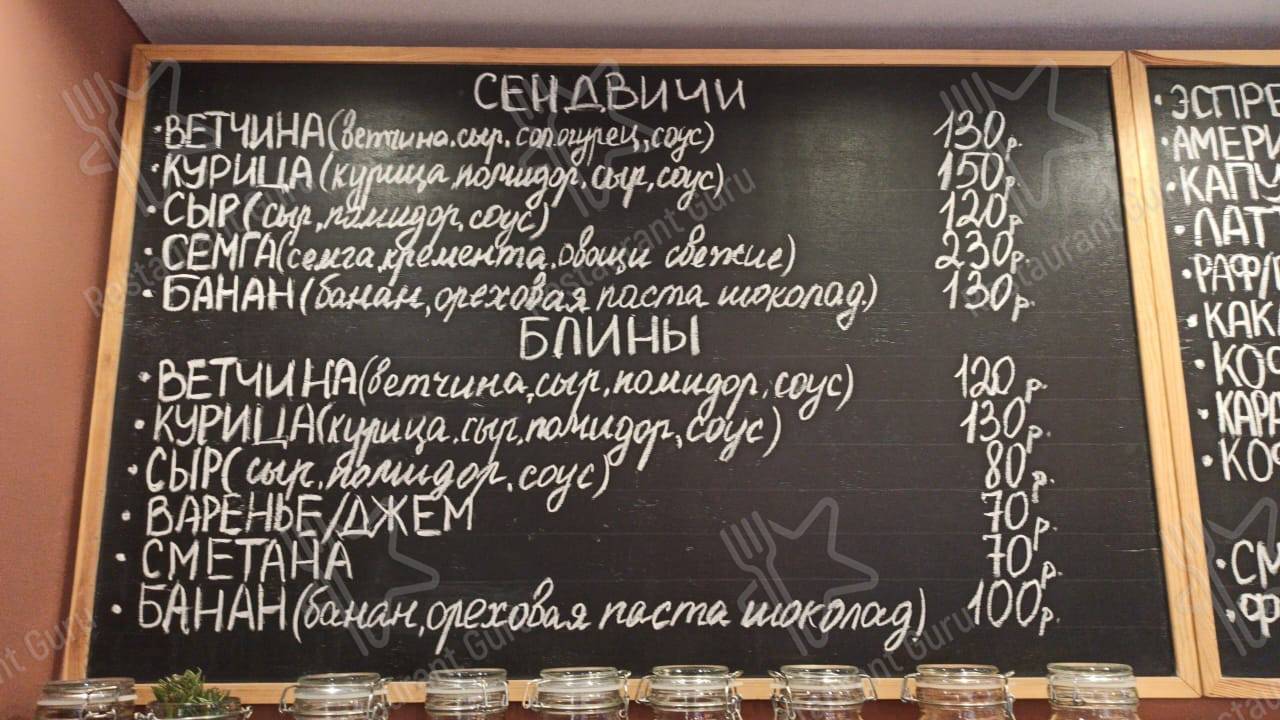 СЕНДВИЧИ
·ВЕТЧИНА(ветчина.сыр.сол.огурец,соус) 130р.
·КУРИЦА(курица,помидор,сыр,соус) 150р.
·СЫР(сыр,помидор,соус) 120р
·СЕМГА(семга,кремента.овощи свежие) 230р.
·БАНАН(банан,ореховая паста шоколад.) 130р.
БЛИНЫ
·ВЕТЧИНА(ветчина,сыр,помидор,соус) 120р.
·КУРИЦА(курица.сыр,помидор,соус) 130р.
·СЫР(сыр,помидор,соус) 80р.
·ВАРЕНЬЕ/ДЖЕМ 70р.
·СМЕТАНА 70р.
·БАНАН(банан,ореховая паста шоколад) 100р.
·ЭСПРЕ
·АМЕРИ
·КАПУ
·ЛАТ
·РАФ/
·КАК
·КОФ
·КАРА
·КОФ
·СМ
·ФР
Restaurant Guru
Restaurant Guru
Restaurant Guru
Restaurant Guru
Restaurant Guru